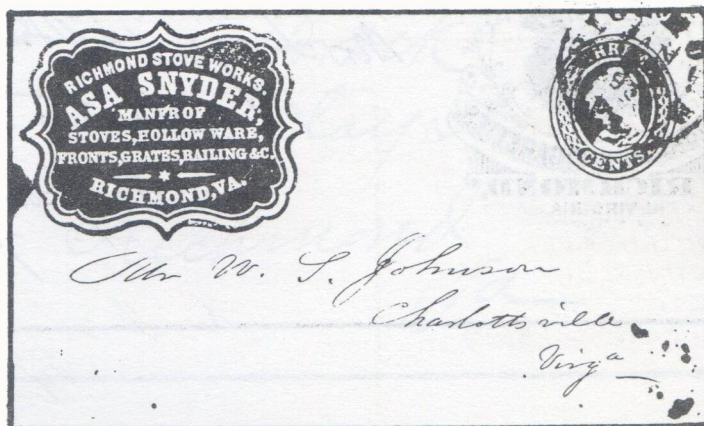 RICHMOND STOVE WORKS.
ASA SNYDER,
MANFR OF
STOVES, HOLLOW WARE,
FRONTS, GRATES, RAILING &C.
RICHMOND, VA.
CENTS
Mr W. S. Johnson
Charlottsville
Virga